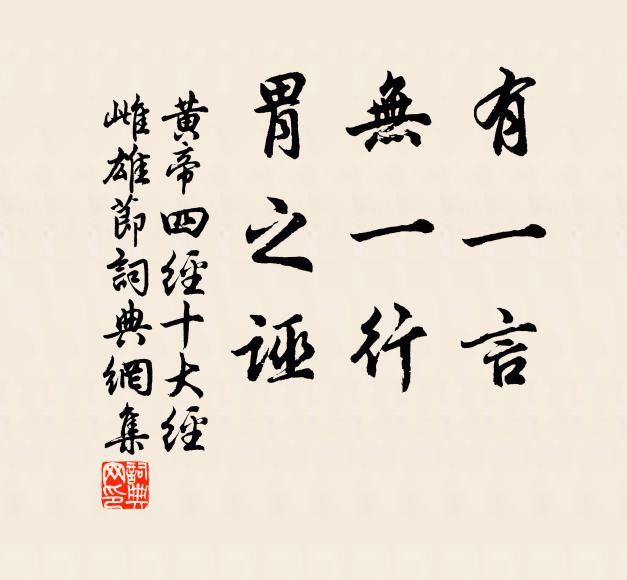 有一言
無一行
胃之誣
黃帝四經十大經
雌雄節詞典網集
詞典
网印